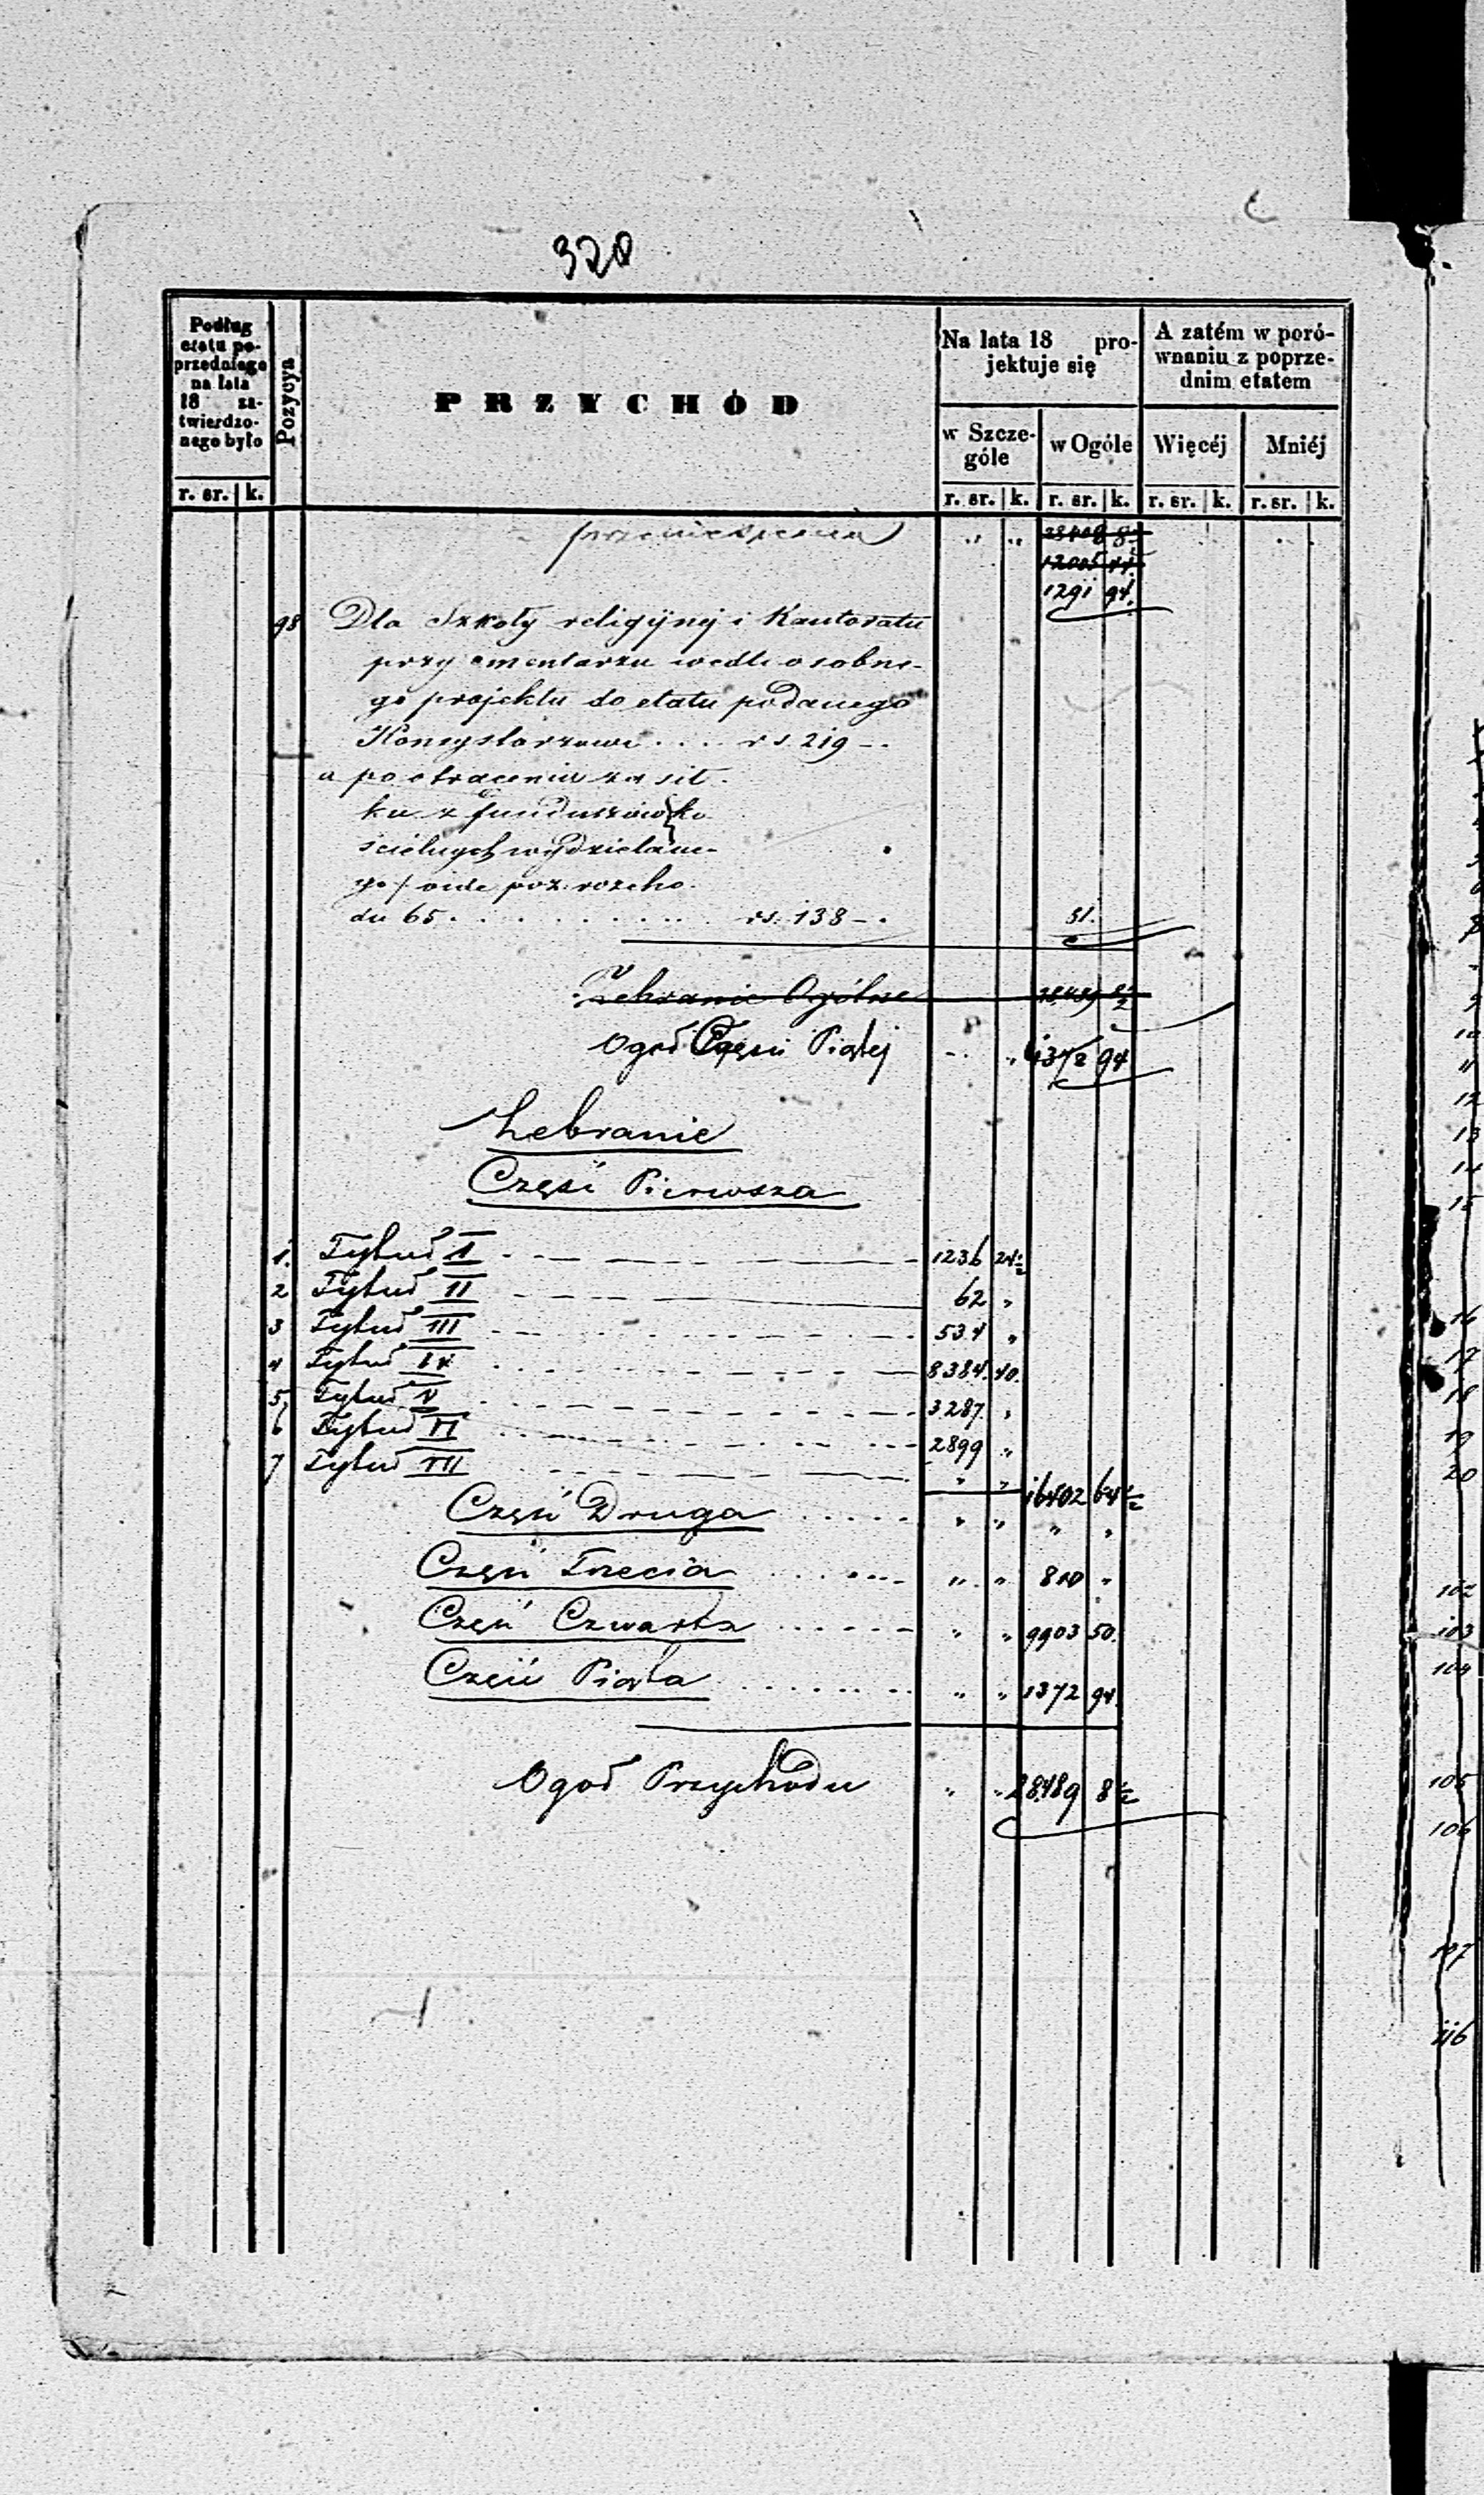 320
Podług etatu poprzedniego na lata 18 zatwierdzonego było
Pozycya
PRZYCHÓD
Na lata 18 projektuje się
A zatém w porównaniu z poprzednim etatem
w Szczególe
w Ogóle
Więcéj
Mniéj
r. sr. k. r. sr. k. r. sr. k. r. sr. k. r. sr. k.
przeniesienia " "
12005
1291 94
98 Dla Szkoły religijnej i Kantoratu
przy cmentarzu wedle osobne-
go projektu do etatu podanego
Konsystorzowi .... rs. 219 -.
a po otraceniu zasił-
ku z funduszów ko
scielnych wydzielane-
go / vide poz. rozcho-
du 65 . . . . . . rs. 138 -. 81.
Zebranie Ogólne 28489 8½
Ogoł Częsci Piątej 1372 94
Zebranie
Część Pierwsza
1. Tytuł I 1236 24½
2 Tytuł II 62 "
3 Tytuł III 534 "
4 Tytuł IV 8384. 40.
5 Tytuł V 3287. "
6 Tytuł VI 2899 "
7 Tytuł VII " "
16402 64½
Część Druga " " " "
Część Trzecia " " 810 "
Część Czwarta " " 9903 50.
Część Piąta " " 1372 94
Ogoł Przychodu " " 28489 8½
15
16
17
18
19
20
102
103
104
105
106
107
116